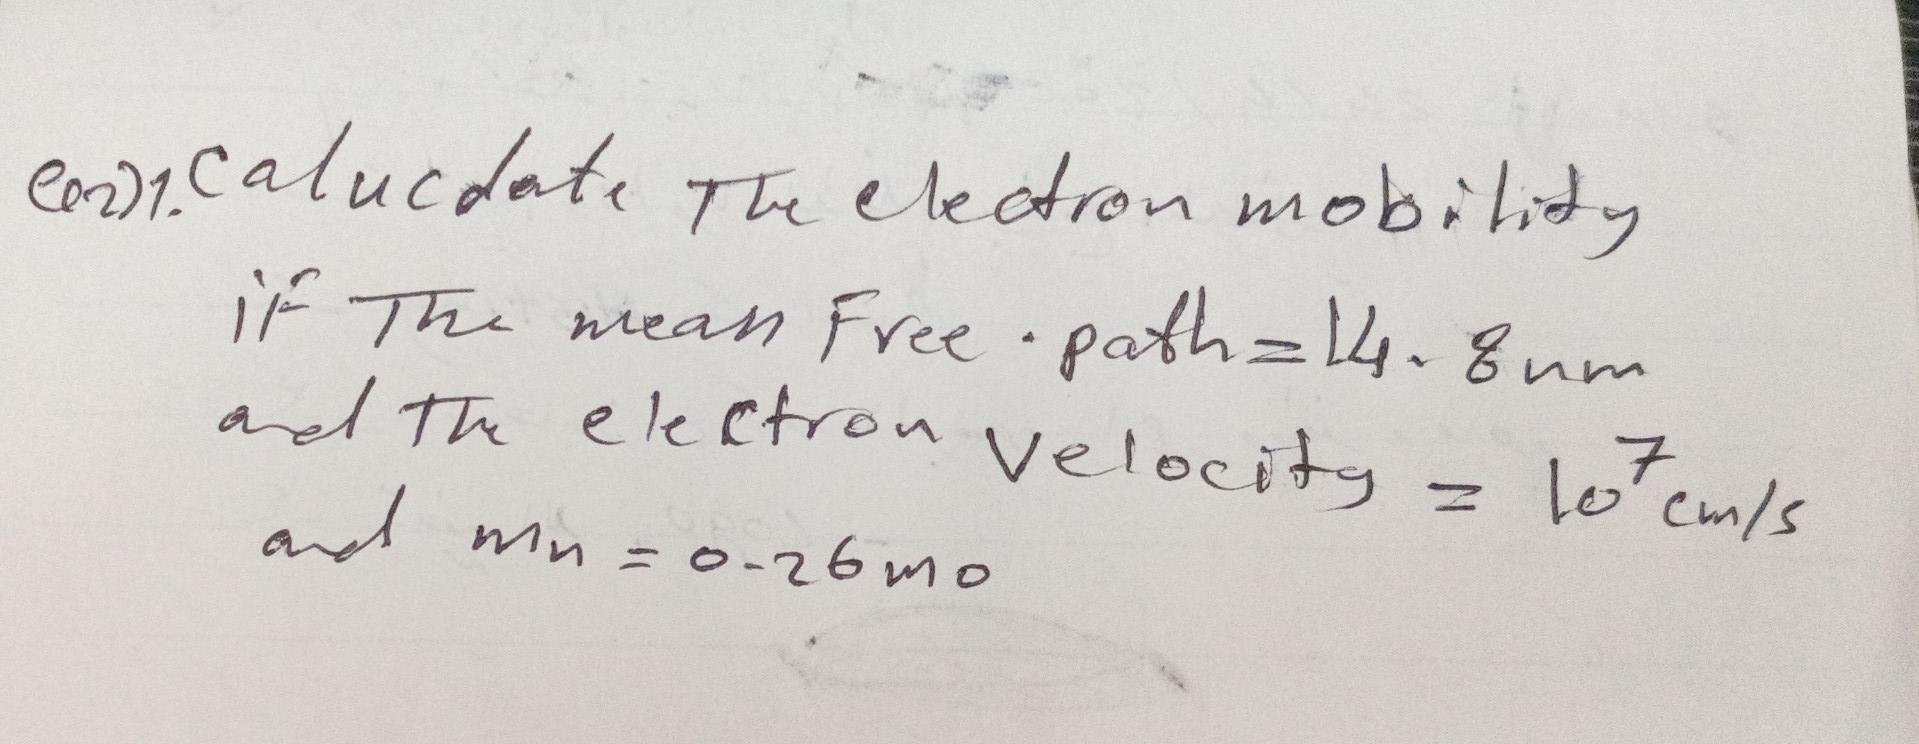 1. Calucdate The electron mobility
if The mean Free . path = 14.8nm
and The electron Velocity = 10⁷ cm/s
and mn = 0.26 mo